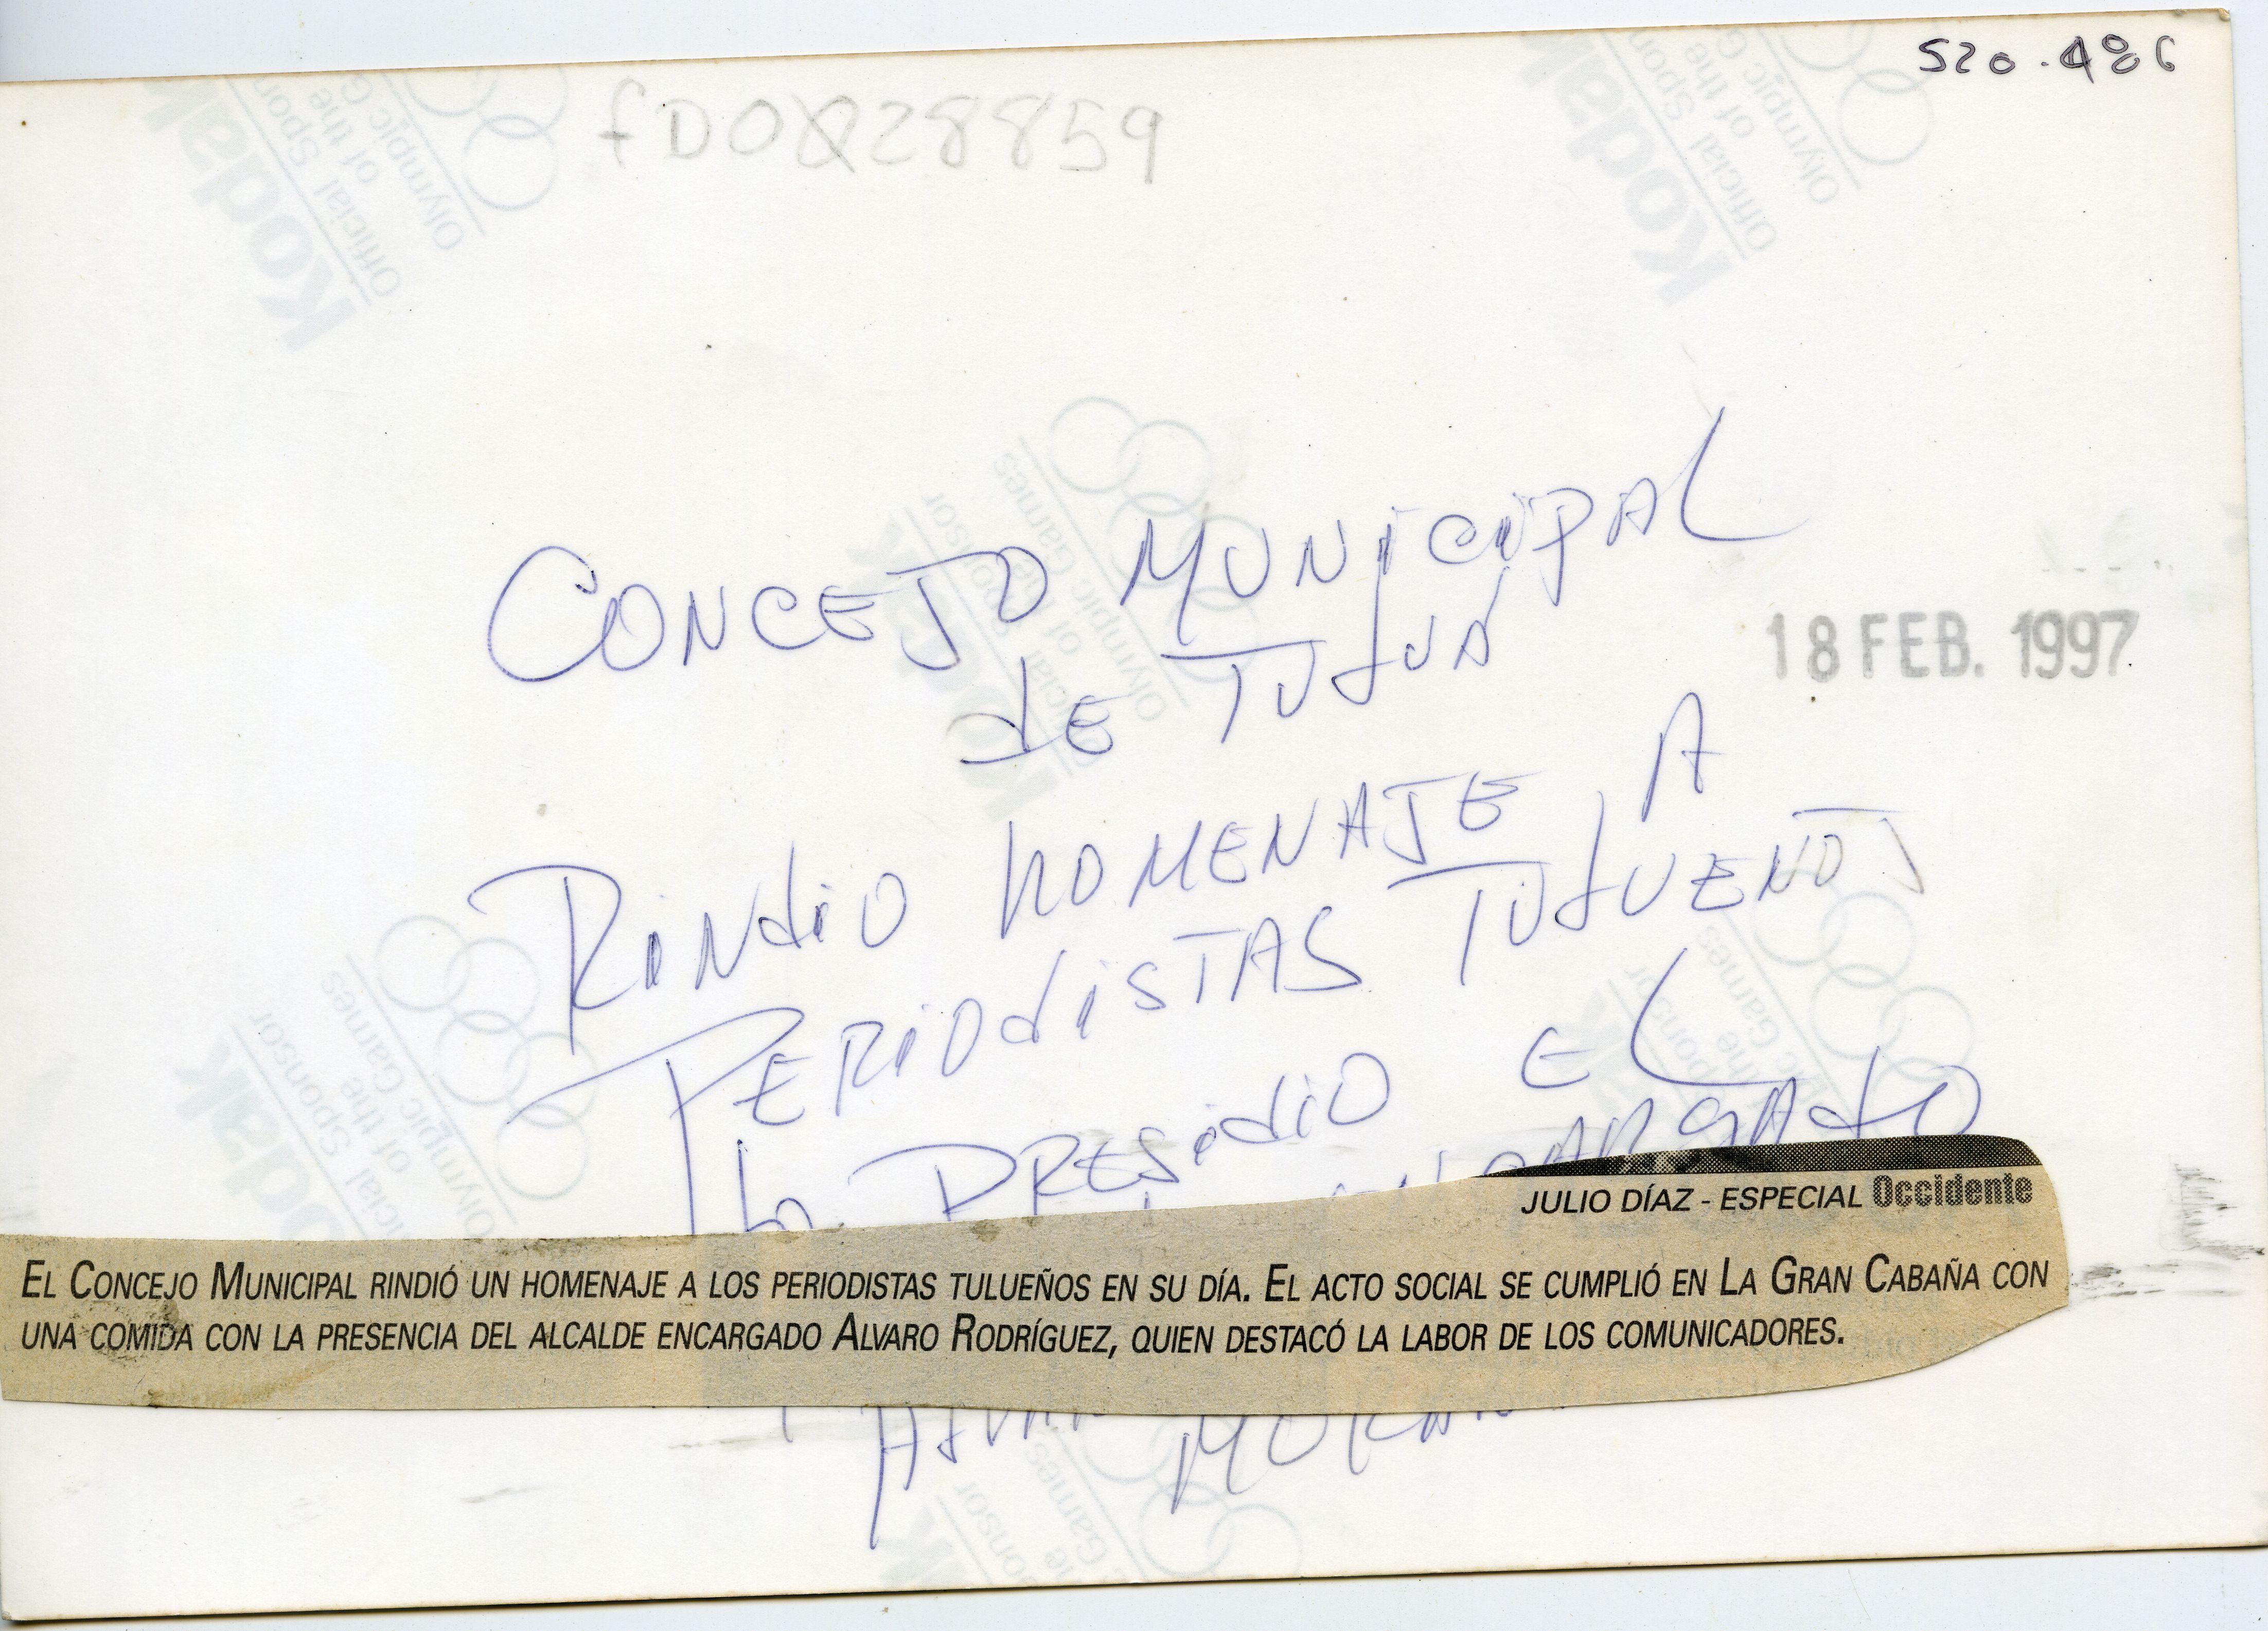 520.486
fD0028859
CONCEJO MUNICIPAL
dE TULUÁ
18 FEB. 1997
RINdiO HOMENAJE A
PERIOdiSTAS TULUEÑOS
Lo PRESidiO EL
ENCARGAdO
JULIO DÍAZ - ESPECIAL Occidente
EL CONCEJO MUNICIPAL RINDIÓ UN HOMENAJE A LOS PERIODISTAS TULUEÑOS EN SU DÍA. EL ACTO SOCIAL SE CUMPLIÓ EN LA GRAN CABAÑA CON
UNA COMIDA CON LA PRESENCIA DEL ALCALDE ENCARGADO ALVARO RODRÍGUEZ, QUIEN DESTACÓ LA LABOR DE LOS COMUNICADORES.
Kodak
Official Sponsor
of the
Olympic Games